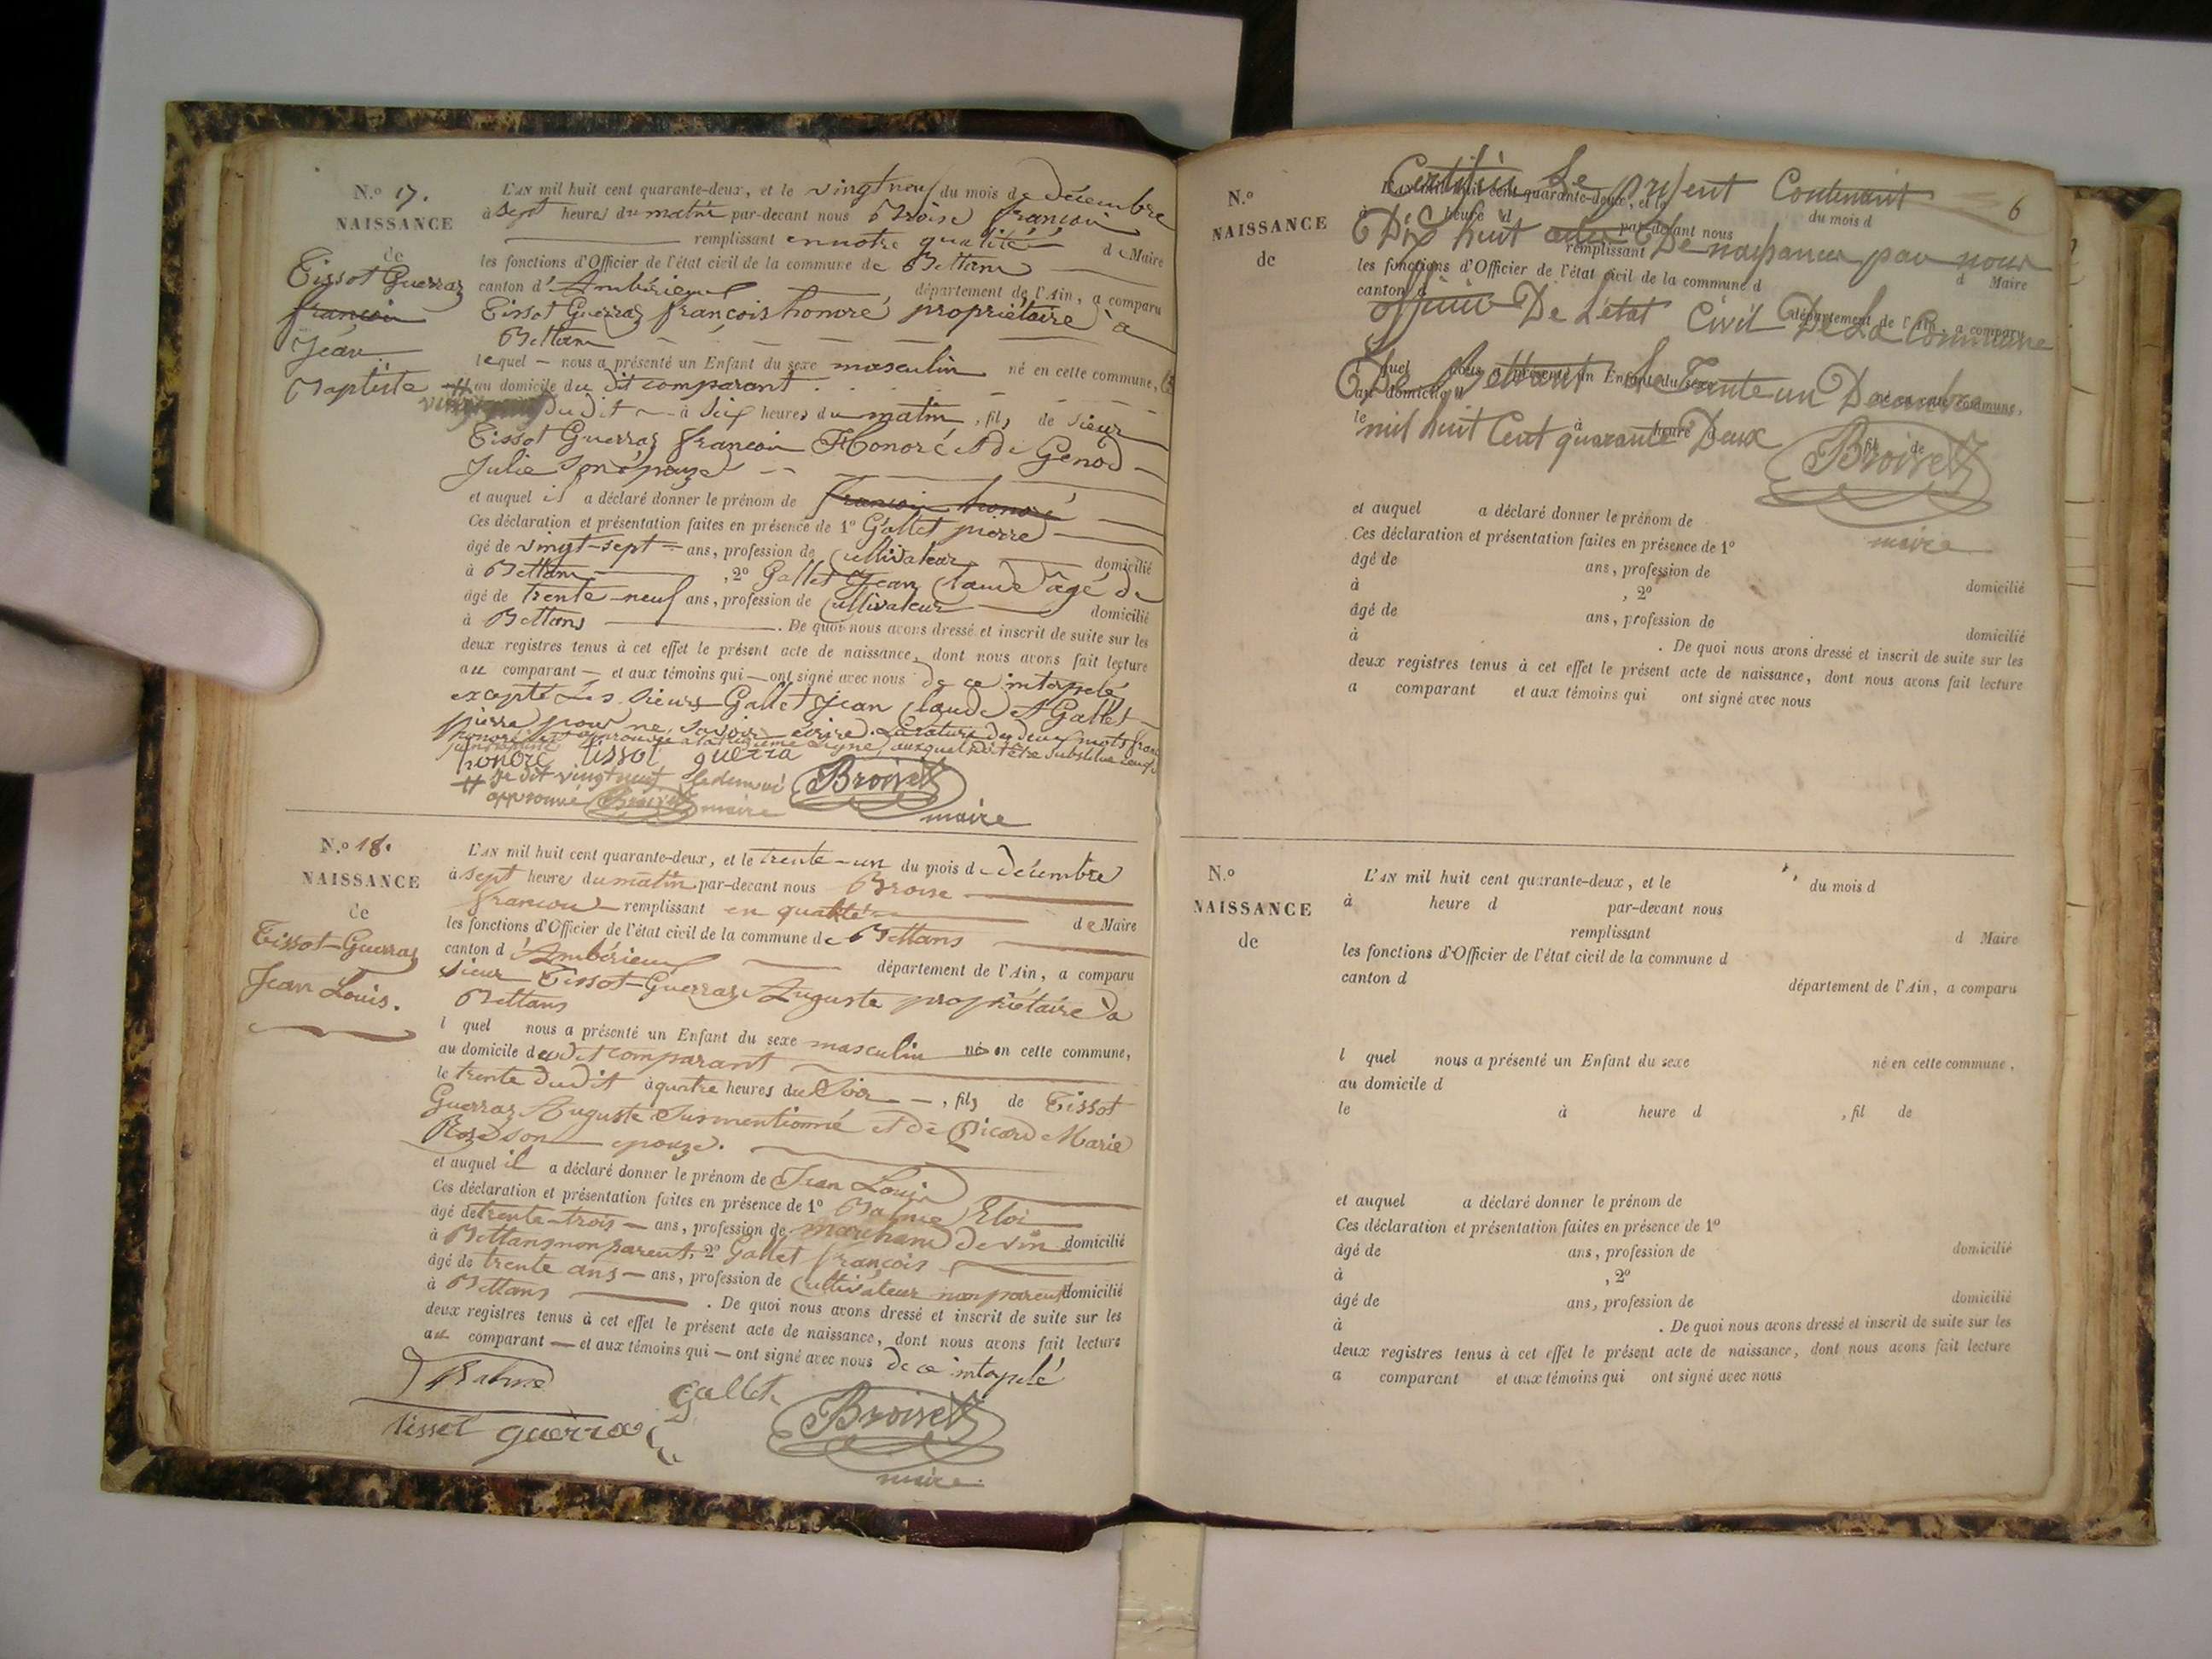 N.º 17.
NAISSANCE
de
Tissot Guerraz
françois
Jean
Baptiste
L'AN mil huit cent quarante-deux, et le vingt neuf du mois de décembre
à sept heures du matin par-devant nous Broise françois
remplissant en notre qualité de Maire
les fonctions d'Officier de l'état civil de la commune de Bettans
canton d'Ambérieux département de l'Ain, a comparu
Tissot Guerraz françois honoré propriétaire à
Bettans
lequel nous a présenté un Enfant du sexe masculin né en cette commune,
# au domicile du dit comparant.
dudit à six heures du matin, fils de sieur
Tissot Guerraz françois Honoré et de Genod
Julie son épouze
et auquel il a déclaré donner le prénom de françois honoré
Ces déclaration et présentation faites en présence de 1º Gallet pierre
âgé de vingt-sept ans, profession de Cultivateur domicilié
à Bettans, 2º Gallet Jean Claude âgé de
âgé de trente-neuf ans, profession de Cultivateur domicilié
à Bettans. De quoi nous avons dressé et inscrit de suite sur les
deux registres tenus à cet effet le présent acte de naissance, dont nous avons fait lecture
au comparant et aux témoins qui ont signé avec nous de ce interpelé
excepté les sieurs Gallet Jean Claude et Gallet
pierre pour ne savoir écrire. La rature des deux mots
honoré tissot guerra
# le dit vingt neuf
approuvé Broise maire
Broise
maire
N.º 18.
NAISSANCE
de
Tissot-Guerraz
Jean Louis.
L'AN mil huit cent quarante-deux, et le trente-un du mois de décembre
à sept heures du matin par-devant nous Broise
françois remplissant en qualité de Maire
les fonctions d'Officier de l'état civil de la commune de Bettans
canton d'Ambérieux département de l'Ain, a comparu
sieur Tissot-Guerraz Auguste propriétaire à
Bettans
l quel nous a présenté un Enfant du sexe masculin né en cette commune,
au domicile dudit comparant
le trente dudit à quatre heures du Soir, fils de Tissot
Guerraz Auguste Susmentionné et de Picard Marie
Roze son epouze.
et auquel il a déclaré donner le prénom de Jean Louis
Ces déclaration et présentation faites en présence de 1º Balme Eloi
âgé de trente-trois ans, profession de marchand de vin domicilié
à Bettans non parent, 2º Gallet françois
âgé de trente ans ans, profession de Cultivateur non parent domicilié
à Bettans. De quoi nous avons dressé et inscrit de suite sur les
deux registres tenus à cet effet le présent acte de naissance, dont nous avons fait lecture
au comparant et aux témoins qui ont signé avec nous de ce interpelé
Balme
Gallet
Broise
tissot guerraz
maire
6
Certifié le présent Contenant
Dix huit actes De naissances par nous
officier De L'état Civil De La Commune
De Bettans le Trente un Decembre
mil huit Cent quarante Deux
Broise
maire
N.º
NAISSANCE
de
L'AN mil huit cent quarante-deux, et le
du mois d
à heure d
par-devant nous
remplissant
d Maire
les fonctions d'Officier de l'état civil de la commune d
canton d
département de l'Ain, a comparu
l quel nous a présenté un Enfant du sexe
né en cette commune,
au domicile d
le à heure d
fil de
et auquel a déclaré donner le prénom de
Ces déclaration et présentation faites en présence de 1º
âgé de ans, profession de domicilié
à , 2º
âgé de ans, profession de domicilié
à . De quoi nous avons dressé et inscrit de suite sur les
deux registres tenus à cet effet le présent acte de naissance, dont nous avons fait lecture
a comparant et aux témoins qui ont signé avec nous
N.º
NAISSANCE
de
L'AN mil huit cent quarante-deux, et le du mois d
à heure d par-devant nous
remplissant d Maire
les fonctions d'Officier de l'état civil de la commune d
canton d département de l'Ain, a comparu
l quel nous a présenté un Enfant du sexe né en cette commune,
au domicile d
le à heure d , fil de
et auquel a déclaré donner le prénom de
Ces déclaration et présentation faites en présence de 1º
âgé de ans, profession de domicilié
à , 2º
âgé de ans, profession de domicilié
à . De quoi nous avons dressé et inscrit de suite sur les
deux registres tenus à cet effet le présent acte de naissance, dont nous avons fait lecture
a comparant et aux témoins qui ont signé avec nous